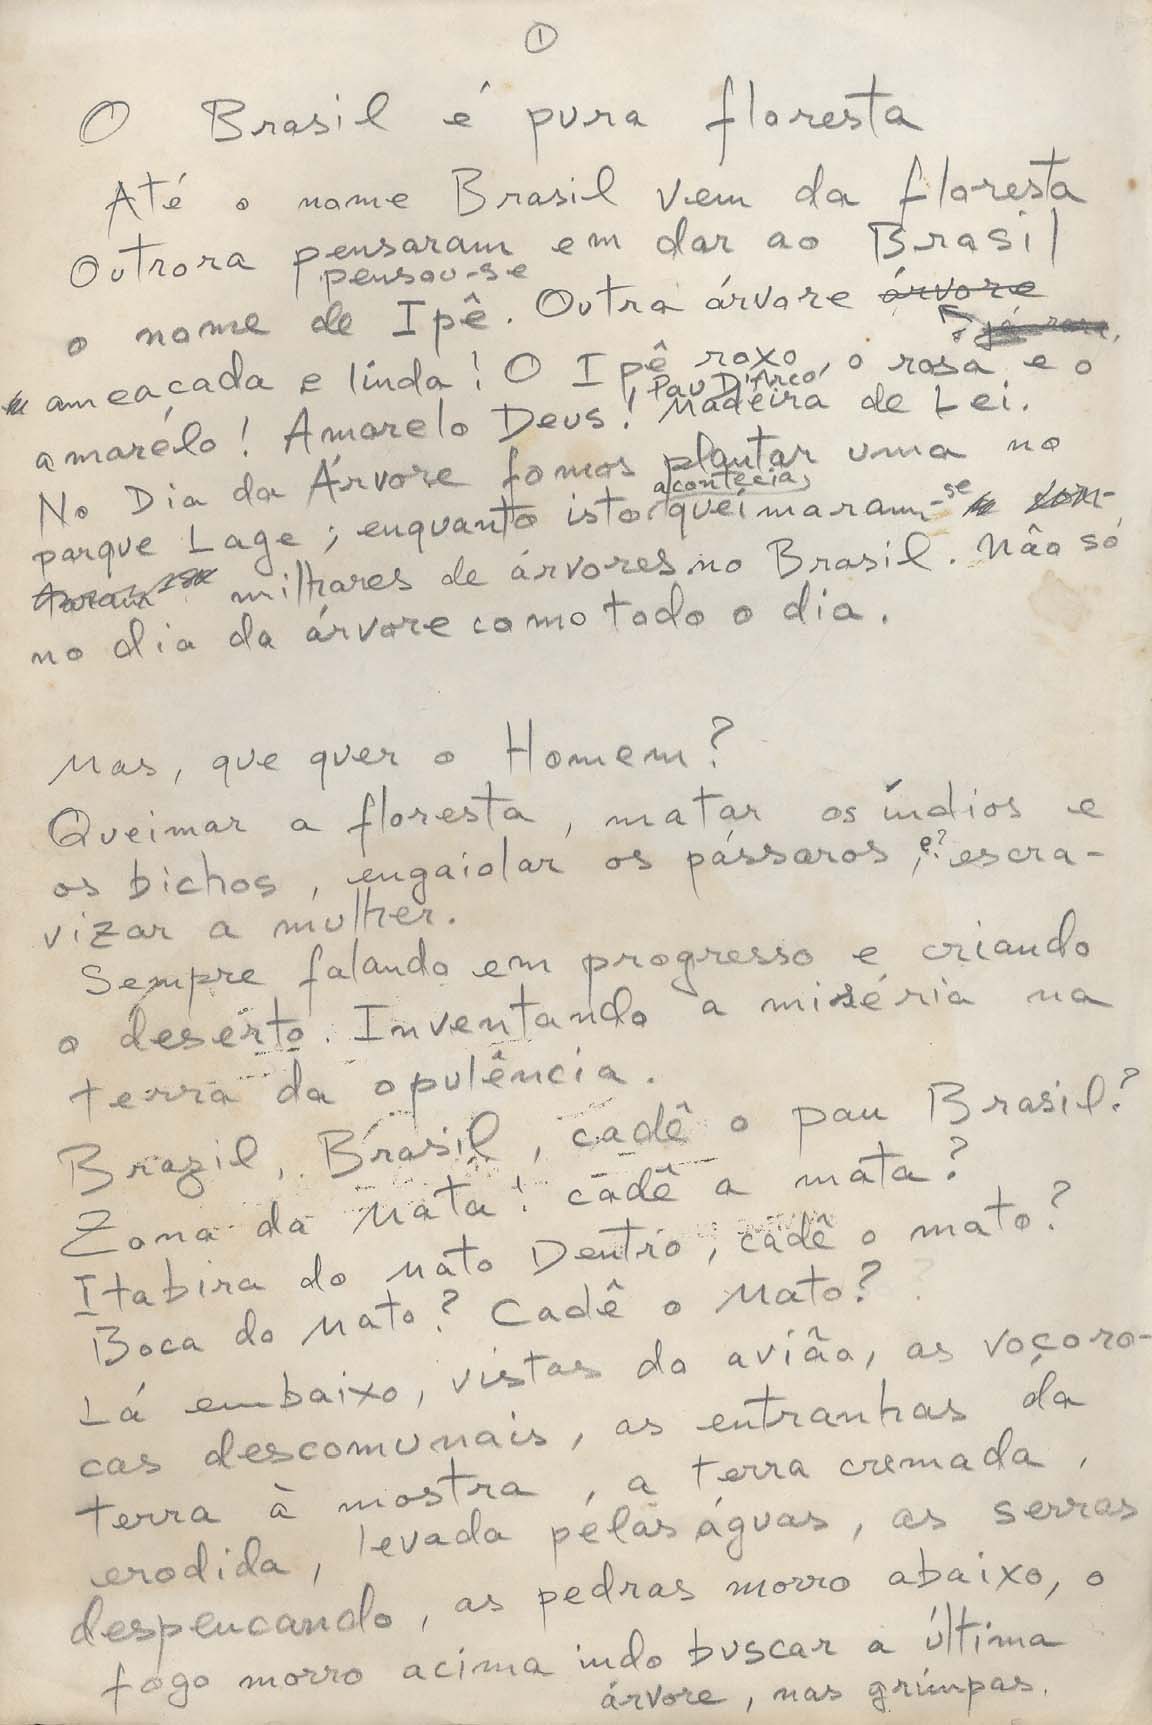 1
O Brasil é pura floresta
Até o nome Brasil vem da floresta
Outrora pensaram em dar ao Brasil
pensou-se
o nome de Ipê. Outra árvore árvore
já rara,
ameaçada e linda! O Ipê roxo, o rosa e o
Pau D'Arco,
amarélo! Amarelo Deus! Madeira de Lei.
No Dia da Árvore fomos plantar uma no
acontecia,
parque Lage; enquanto isto queimaram-se tom-
baram milhares de árvores no Brasil. Não só
no dia da árvore como todo o dia.
Mas, que quer o Homem?
Queimar a floresta, matar os índios e
os bichos, engaiolar os pássaros, e? escra-
vizar a mulher.
Sempre falando em progresso e criando
o deserto. Inventando a miséria na
terra da opulência.
Brazil, Brasil, cadê o pau Brasil?
Zona da Mata! cadê a mata?
Itabira do Mato Dentro, cadê o mato?
Boca do Mato? Cadê o Mato?
Lá embaixo, vistas do avião, as voçoro-
cas descomunais, as entranhas da
terra à mostra, a terra cremada,
erodida, levada pelas águas, as serras
despencando, as pedras morro abaixo, o
fogo morro acima indo buscar a última
árvore, nas grimpas.